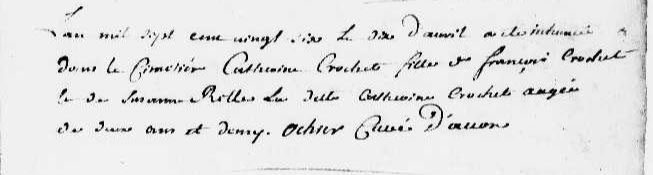 Lan mil sept cent vingt six le six d'avril a ete inhumée
dans le Cimetiere Catherine Crochet fille de françois Crochet
& de Susanne Rille La dite Catherine Crochet augée
de deux ans et demy. Ochier Curé D'auon